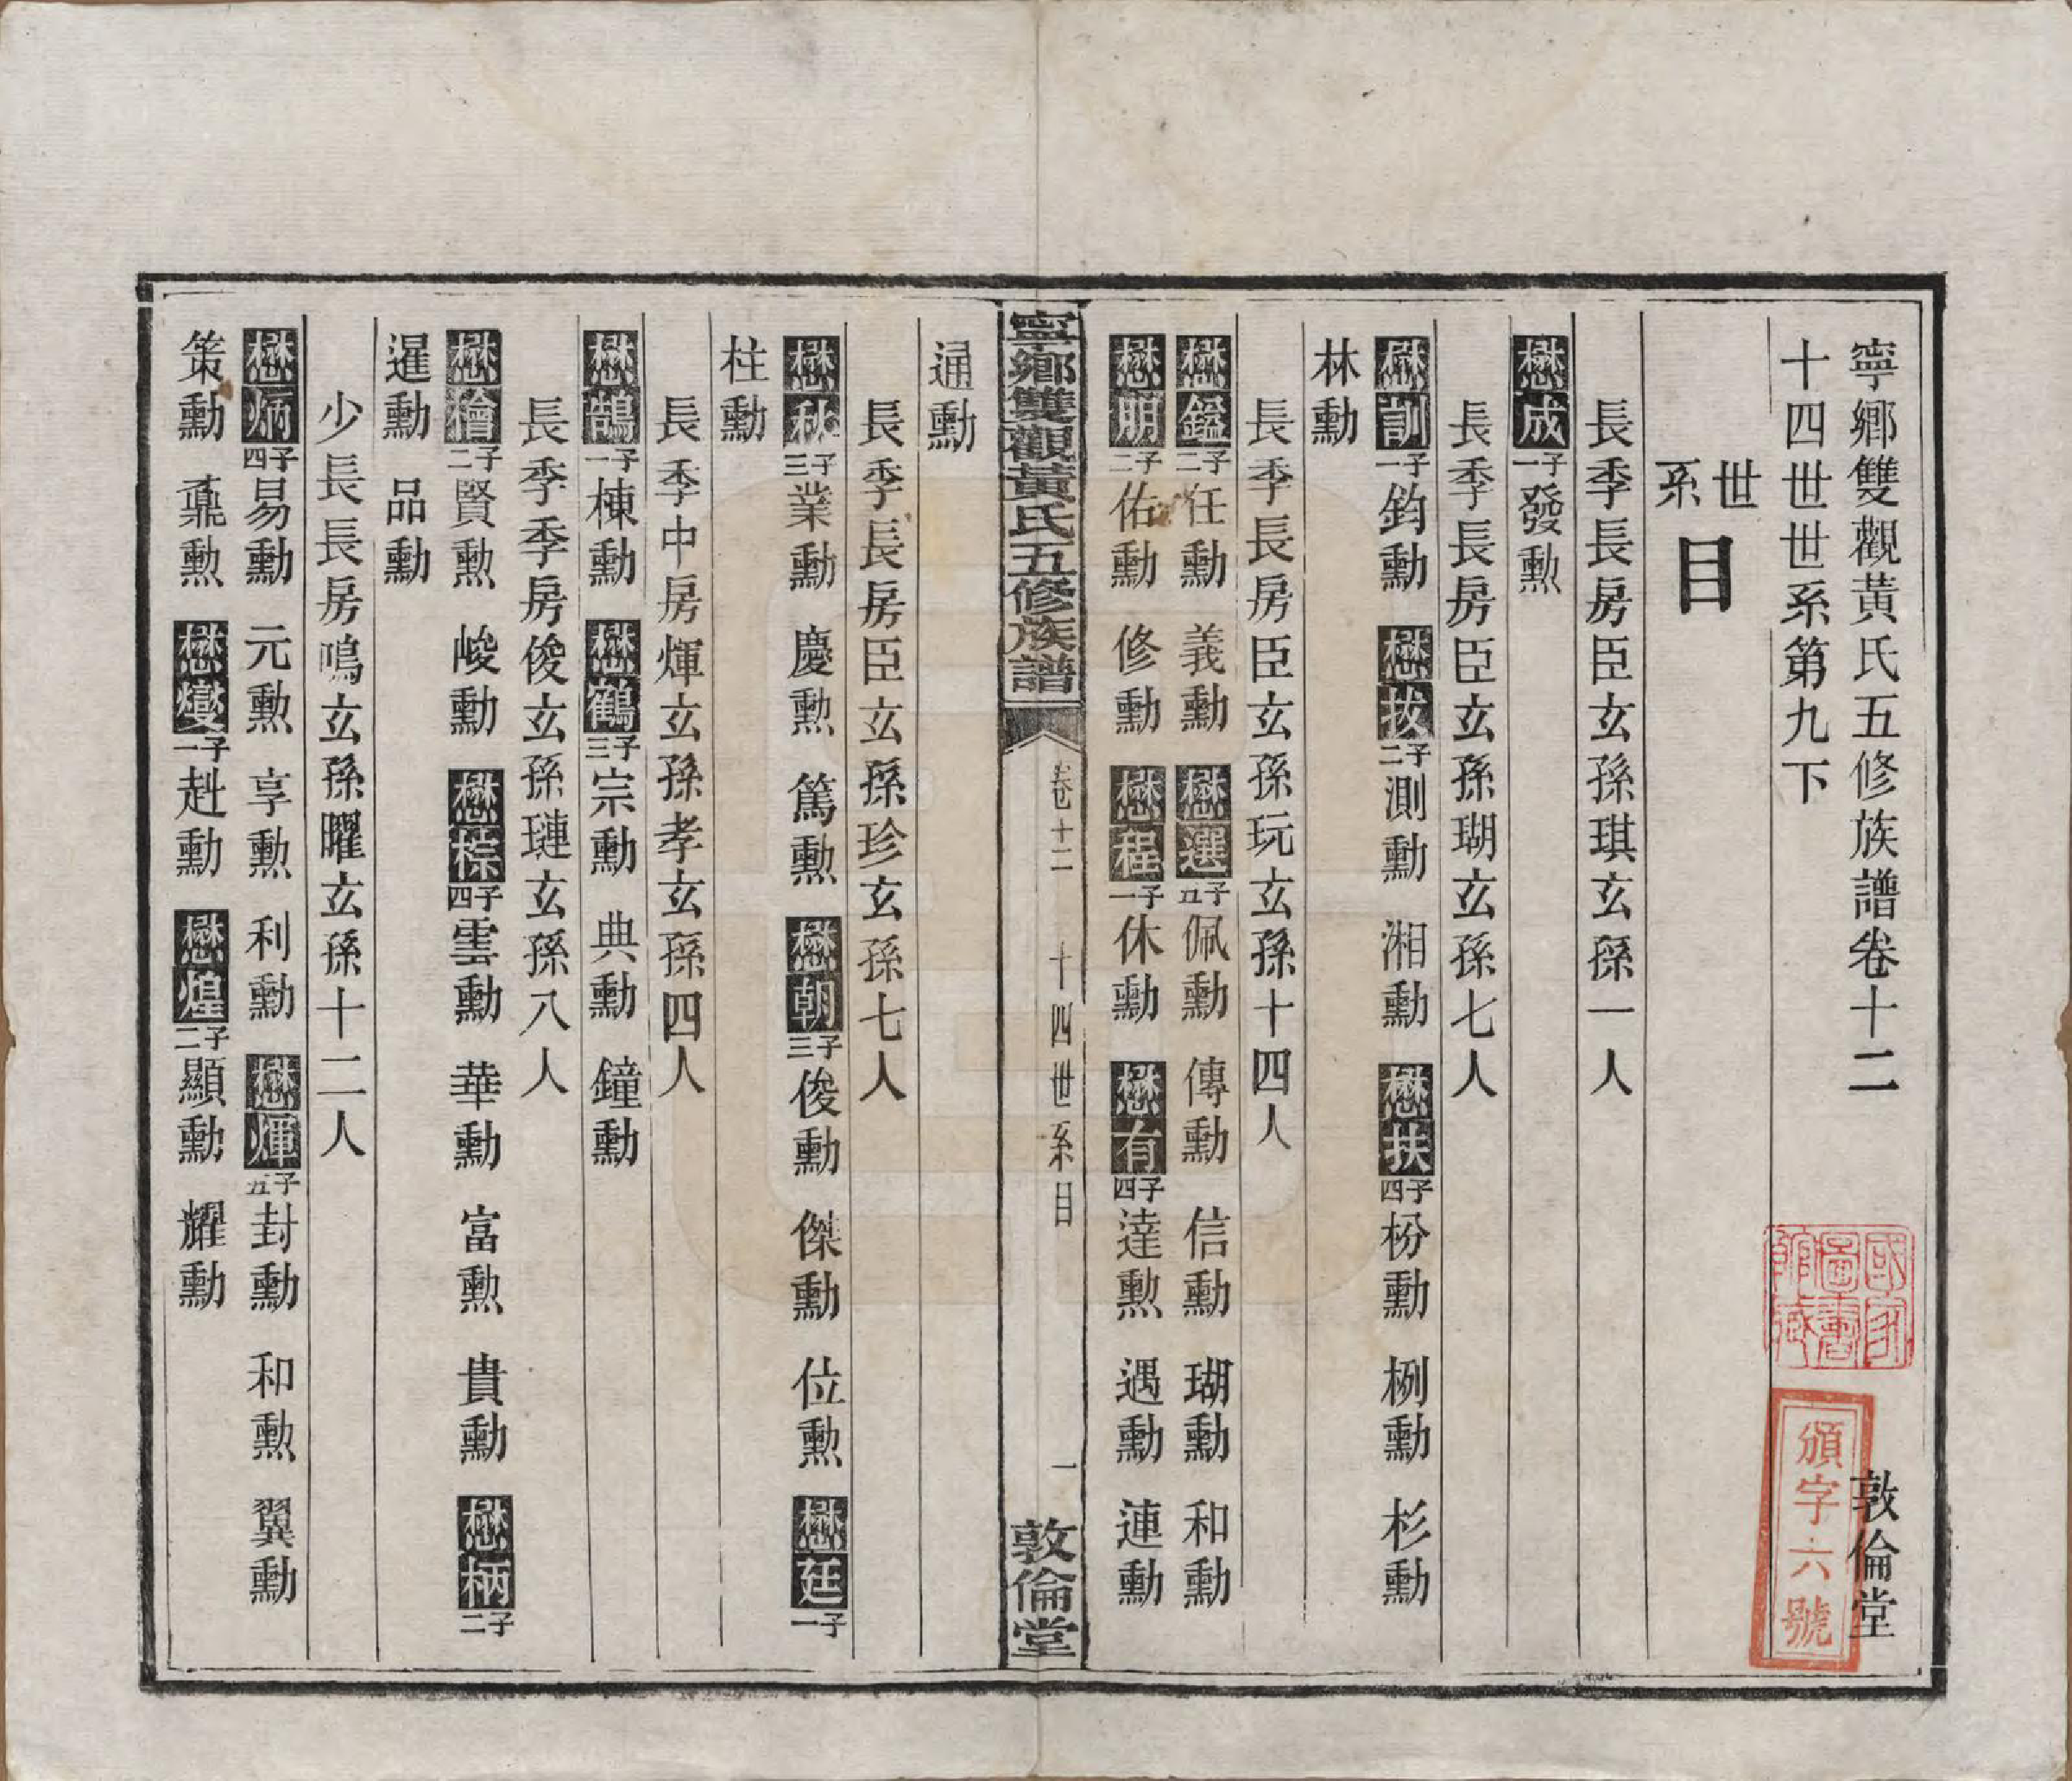 寧鄉雙觀黃氏五修族譜卷十二 敦倫堂
十四世世系第九下
世系目
長季長房臣玄孫琪玄孫一人
懋成一子發勲
長季長房臣玄孫瑚玄孫七人
懋訓一子鈞勳 懋拔二子測勳 湘勳 懋扶四子枌勳 栵勳 杉勳
林勳
長季長房臣玄孫玩玄孫十四人
懋鎰二子任勳 義勳 懋選五子佩勳 傳勳 信勳 瑚勳 和勳
懋朋二子佑勳 修勳 懋程一子休勳 懋有四子達勲 遇勳 連勳
寧鄉雙觀黃氏五修族譜 卷十二 十四世系目 一 敦倫堂
通勳
長季長房臣玄孫珍玄孫七人
懋秋三子業勳 慶勲 篤勲 懋朝三子俊勳 傑勳 位勲 懋廷一子
柱勳
長季中房煇玄孫孝玄孫四人
懋鵠一子棟勳 懋鶴三子宗勳 典勳 鐘勳
長季季房俊玄孫璉玄孫八人
懋檜二子賢勲 峻勳 懋棕四子雲勳 華勳 富勲 貴勳 懋柄二子
暹勳 品勳
少長長房鳴玄孫曜玄孫十二人
懋炳四子易勳 元勲 享勲 利勳 懋煇五子封勳 和勲 翼勳
策勳 鼐勲 懋燮一子赳勳 懋煌二子顯勳 耀勳
國家圖書館藏
頒字六號